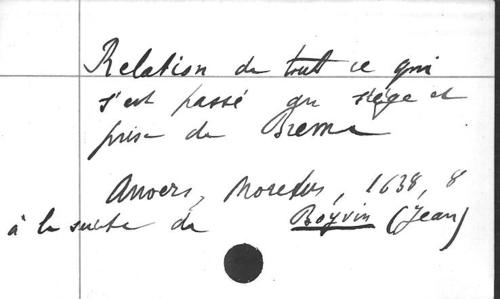 Relation de tout ce qui
s'est passé au siége et
prise de Breme
Anvers, Moretus, 1638, 8
à la suite de Boyvin (Jean)